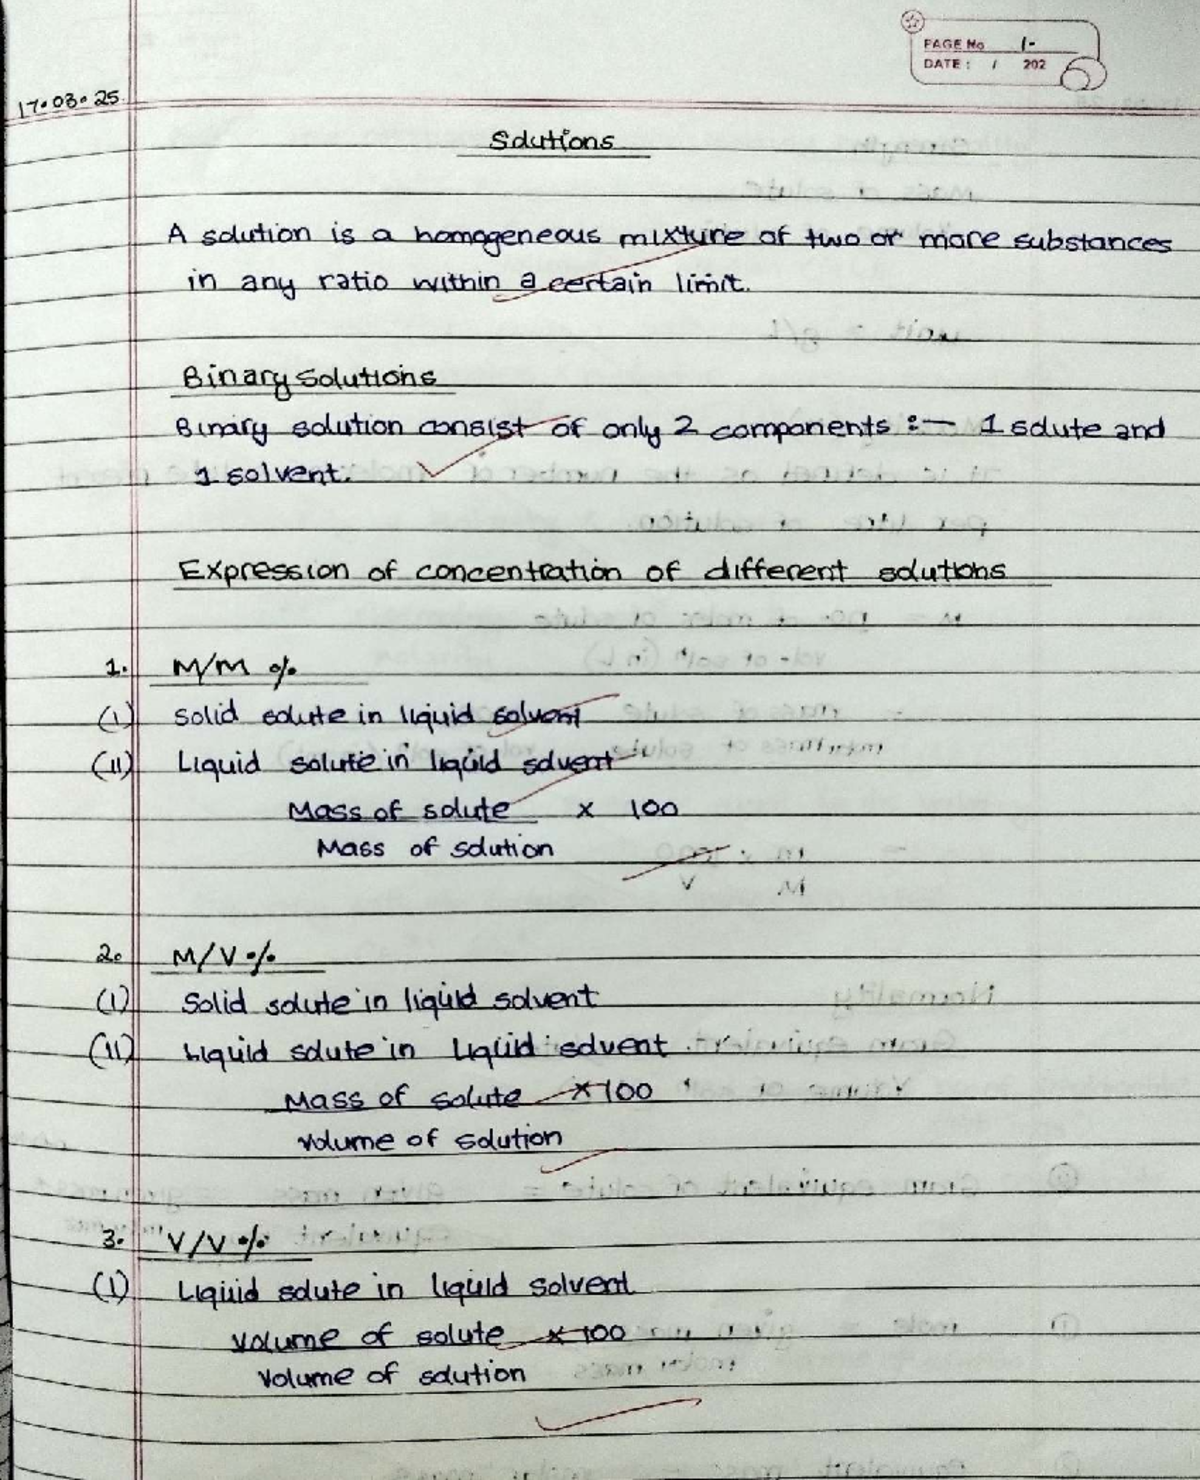 PAGE No 1-
DATE: / 202
17.03.25
Solutions
A solution is a homogeneous mixture of two or more substances
in any ratio within a certain limit.
Binary Solutions
Binary solution consist of only 2 components :- 1 solute and
1 solvent.
Expression of concentration of different solutions
1. M/M %
(i) Solid solute in liquid solvent
(ii) Liquid solute in liquid solvent
Mass of solute x 100
Mass of solution
2. M/V %
(i) Solid solute in liquid solvent
(ii) Liquid solute in liquid solvent
Mass of solute x 100
Volume of solution
3. V/V %
(i) Liquid solute in liquid solvent
Volume of solute x 100
Volume of solution